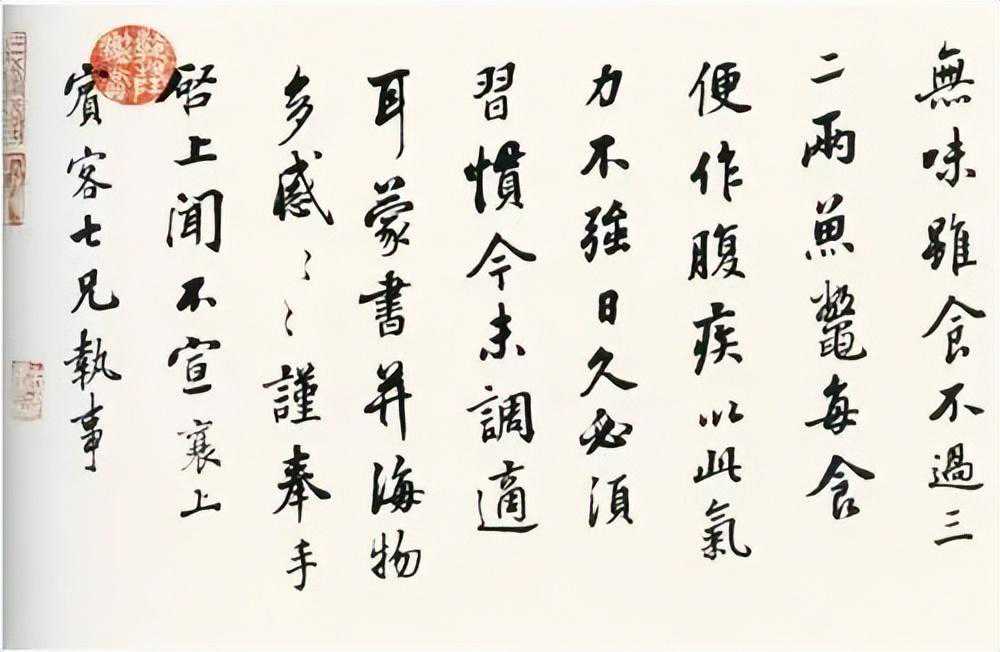 無味雖食不過三
二兩魚鼈每食
便作腹疾以此氣
力不強日久必須
習慣今未調適
耳蒙書并海物
多感〻〻謹奉手
啓上聞不宣襄上
賓客七兄執事